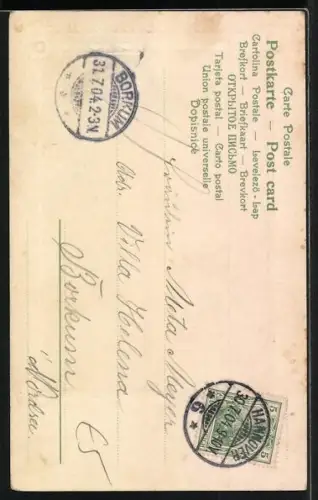 Carte Postale
Postkarte — Post card
Cartolina Postale — Levelező-Lap
Brefkort — Briefkaart — Brevkort
ОТКРЫТОЕ ПИСЬМО
Tarjeta postal — Carto postal
Union postale universelle
Dopisnice
BORKUM
31.7.04.2-3N.
HANNOVER
6
5
5
Fräulein Meta Meyer
Adr. Villa Helena
Borkum
Nordsee